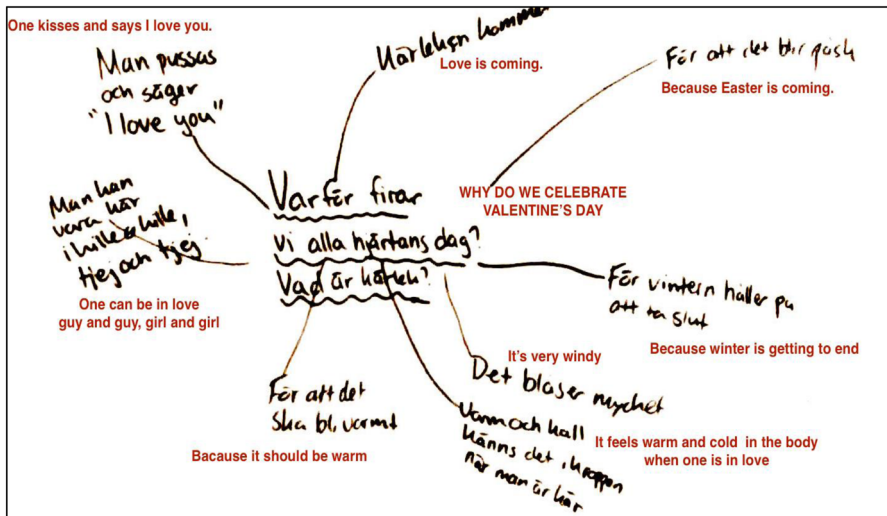 One kisses and says I love you.
Man pussas
och säger
"I love you"
Kärleken kommer
Love is coming.
För att det blir påsk
Because Easter is coming.
Varför firar
vi alla hjärtans dag?
Vad är kärlek?
WHY DO WE CELEBRATE
VALENTINE'S DAY
Man kan
vara kär
i kille & kille,
tjej och tjej.
One can be in love
guy and guy, girl and girl
För vintern håller på
att ta slut
Because winter is getting to end
It's very windy
Det blåser mycket
För att det
ska bli varmt
Bacause it should be warm
Varm och kall
känns det i kroppen
när man är kär
It feels warm and cold in the body
when one is in love